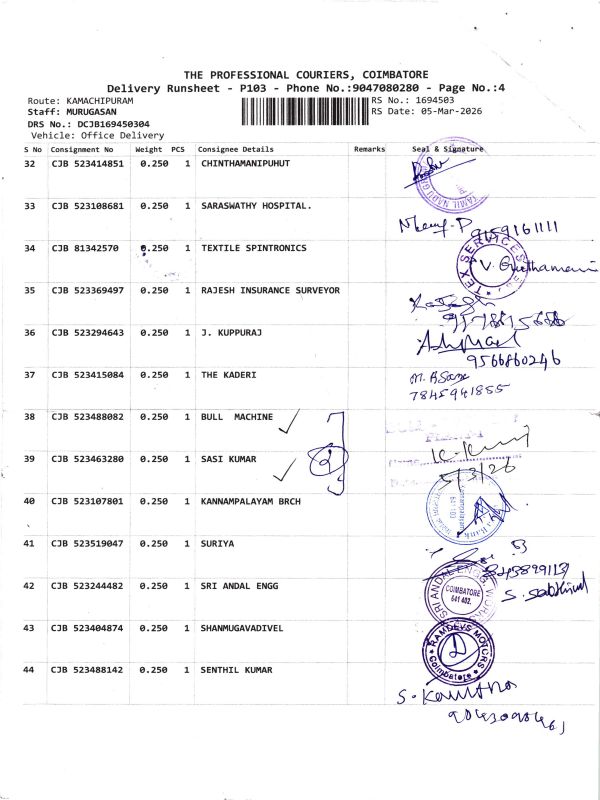 THE PROFESSIONAL COURIERS, COIMBATORE
Delivery Runsheet - P103 - Phone No.:9047080280 - Page No.:4
Route: KAMACHIPURAM RS No.: 1694503
Staff: MURUGASAN RS Date: 05-Mar-2026
DRS No.: DCJB169450304
Vehicle: Office Delivery
S No Consignment No Weight PCS Consignee Details Remarks Seal & Signature
32 CJB 523414851 0.250 1 CHINTHAMANIPUHUT
33 CJB 523108681 0.250 1 SARASWATHY HOSPITAL.
9159161111
34 CJB 81342570 0.250 1 TEXTILE SPINTRONICS
TEX SERVICES
35 CJB 523369497 0.250 1 RAJESH INSURANCE SURVEYOR
36 CJB 523294643 0.250 1 J. KUPPURAJ
9566860246
37 CJB 523415084 0.250 1 THE KADERI
7845941855
38 CJB 523488082 0.250 1 BULL MACHINE
39 CJB 523463280 0.250 1 SASI KUMAR
2
5/3/26
40 CJB 523107801 0.250 1 KANNAMPALAYAM BRCH
41 CJB 523519047 0.250 1 SURIYA
42 CJB 523244482 0.250 1 SRI ANDAL ENGG
SRI ANDAL ENGG WORKS
COIMBATORE
641 402.
43 CJB 523404874 0.250 1 SHANMUGAVADIVEL
RAMDEVS MOTORS
Coimbatore
44 CJB 523488142 0.250 1 SENTHIL KUMAR